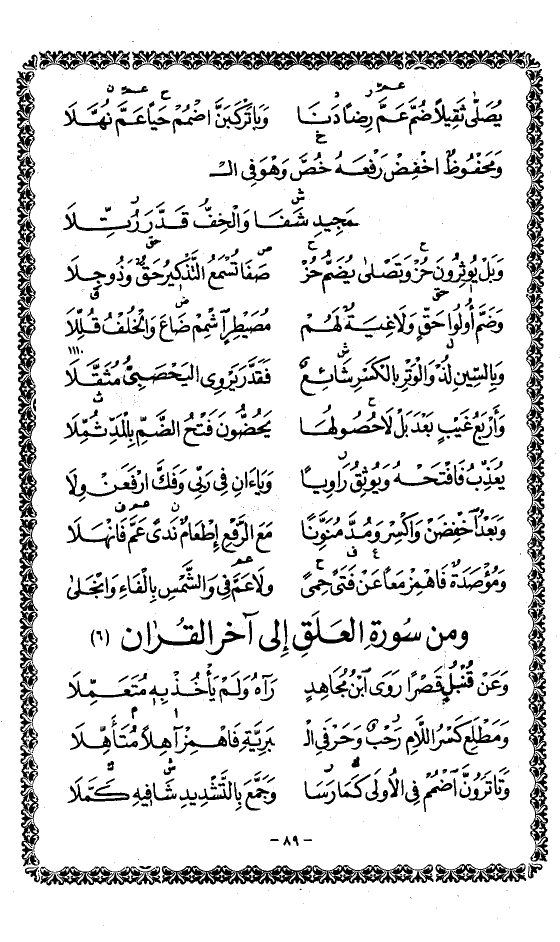 يُصَلَّى ثَقِيلًا ضُمَّ عَمَّ رِضًا دَنَا وَيَا تَرْكَبَنَّ اضْمُمْ حَيًا عَمَّ نُهَّلَا
وَمَحْفُوظٌ اخْفِضْ رَفْعَهُ خُصَّ وَهْوَ فِي الْـ
مَجِيدِ شَفَا وَالْخِفُّ قَدَّرَ رُتِّلَا
وَبَلْ يُؤْثِرُونَ حُزْ وَتَصْلَى يُضَمُّ حُزْ صَفَا تُسْمَعُ التَّذْكِيرُ حَقٌّ وَذُو جِلَا
وَضَمَّ أُولُوا حَقٍّ وَلَاغِيَةٌ لَهُمْ مُصَيْطِرٍ اشْمِمْ ضَاعَ وَالْخُلْفُ قُلِّلَا
وَبِالسِّينِ لُذْ وَالْوَتْرِ بِالْكَسْرِ شَائِعٌ فَقَدَّرَ يَرْوِي الْيَحْصَبِيُّ مُثَقَّلَا
وَأَرْبَعُ غَيْبٍ بَعْدَ بَلْ لَا حُصُولُهَا يَحُضُّونَ فَتْحُ الضَّمِّ بِالْمَدِّ ثُمِّلَا
يُعَذِّبُ فَافْتَحْهُ وَيُوثِقُ رَاوِيًا وَيَاءَانِ فِي رَبِّي وَفَكَّ ارْفَعَنْ وِلَا
وَبَعْدُ اخْفِضَنْ وَاكْسِرْ وَمُدَّ مُنَوِّنًا مَعَ الرَّفْعِ إِطْعَامٌ نَدًى عَمَّ فَانْهَلَا
وَمُؤْصَدَةٌ فَاهْمِزْ مَعًا عَنْ فَتًى حِمًى وَلَا عَمَّ فِي وَالشَّمْسِ بِالْفَاءِ وَانْجَلَى
ومن سورة العلق إلى آخر القرآن (٦)
وَعَنْ قُنْبُلٍ قَصْرًا رَوَى ابْنُ مُجَاهِدٍ رَآهُ وَلَمْ يَأْخُذْ بِهِ مُتَعَمِّلَا
وَمَطْلَعِ كَسْرُ اللَّامِ رَحْبٌ وَحَرْفَيِ الْـ بَرِيَّةِ فَاهْمِزْ آهِلًا مُتَأَهِّلَا
وَتَا تَرَوُنَّ اضْمُمْ فِي الْأُولَى كَمَا رَسَا وَجَمَّعَ بِالتَّشْدِيدِ شَافِيهِ كَمَّلَا
- ٨٩ -